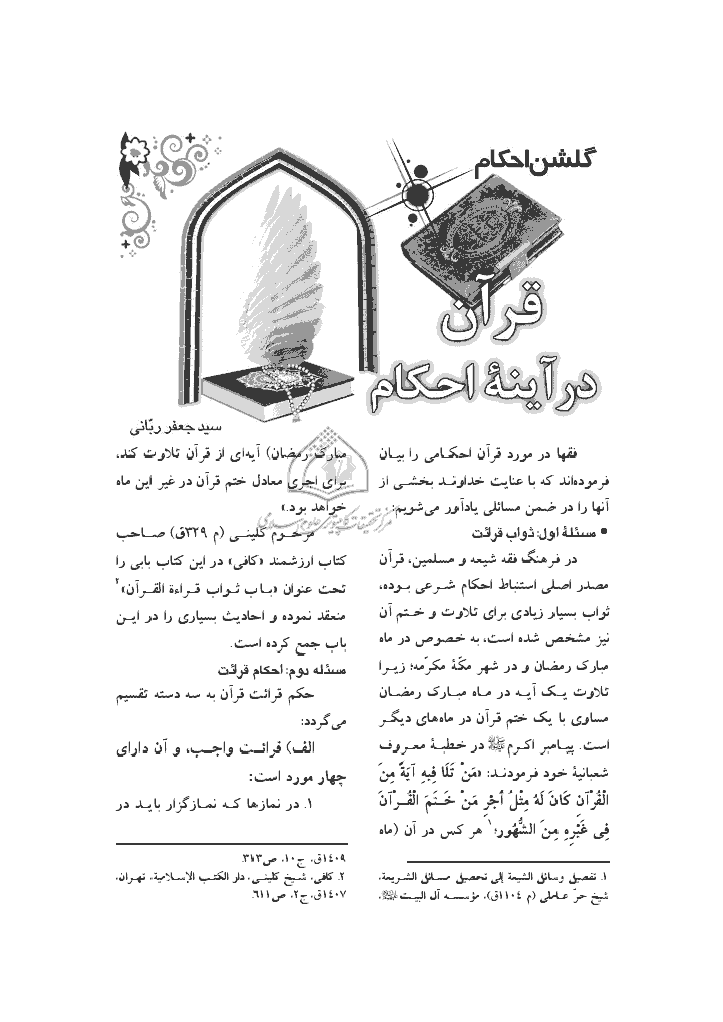 گلشن احکام
قرآن
در آینهٔ احکام
سید جعفر ربّانی
فقها در مورد قرآن احکامی را بیان
فرموده‌اند که با عنایت خداوند بخشی از
آنها را در ضمن مسائلی یادآور می‌شویم:
• مسئلهٔ اول: ثواب قرائت
در فرهنگ فقه شیعه و مسلمین، قرآن
مصدر اصلی استنباط احکام شرعی بوده،
ثواب بسیار زیادی برای تلاوت و ختم آن
نیز مشخص شده است، به خصوص در ماه
مبارک رمضان و در شهر مکّهٔ مکرّمه؛ زیرا
تلاوت یک آیه در ماه مبارک رمضان
مساوی با یک ختم قرآن در ماه‌های دیگر
است. پیامبر اکرم ﷺ در خطبهٔ معروف
شعبانیهٔ خود فرمودند: «مَنْ تَلَا فِیهِ آیَةً مِنَ
الْقُرْآنِ کَانَ لَهُ مِثْلُ أَجْرِ مَنْ خَتَمَ الْقُرْآنَ
فِی غَیْرِهِ مِنَ الشُّهُورِ؛۱ هر کس در آن (ماه
۱. تفصیل وسائل الشیعة إلی تحصیل مسائل الشریعة،
شیخ حرّ عاملی (م ۱۱۰۴ق)، مؤسسه آل البیت،
مبارک رمضان) آیه‌ای از قرآن تلاوت کند،
برای اجری معادل ختم قرآن در غیر این ماه
خواهد بود.»
مرحوم کلینی (م ۳۲۹ق) صاحب
کتاب ارزشمند «کافی» در این کتاب بابی را
تحت عنوان «باب ثواب قراءة القرآن»۲
منعقد نموده و احادیث بسیاری را در این
باب جمع کرده است.
مسئله دوم: احکام قرائت
حکم قرائت قرآن به سه دسته تقسیم
می‌گردد:
الف) قرائت واجب، و آن دارای
چهار مورد است:
۱. در نمازها که نمازگزار باید در
۱۴۰۹ق، ج۱۰، ص۳۱۳.
۲. کافی، شیخ کلینی، دار الکتب الإسلامیة، تهران،
۱۴۰۷ق، ج۲، ص۶۱۱.
مرکز تحقیقات کامپیوتری علوم اسلامی